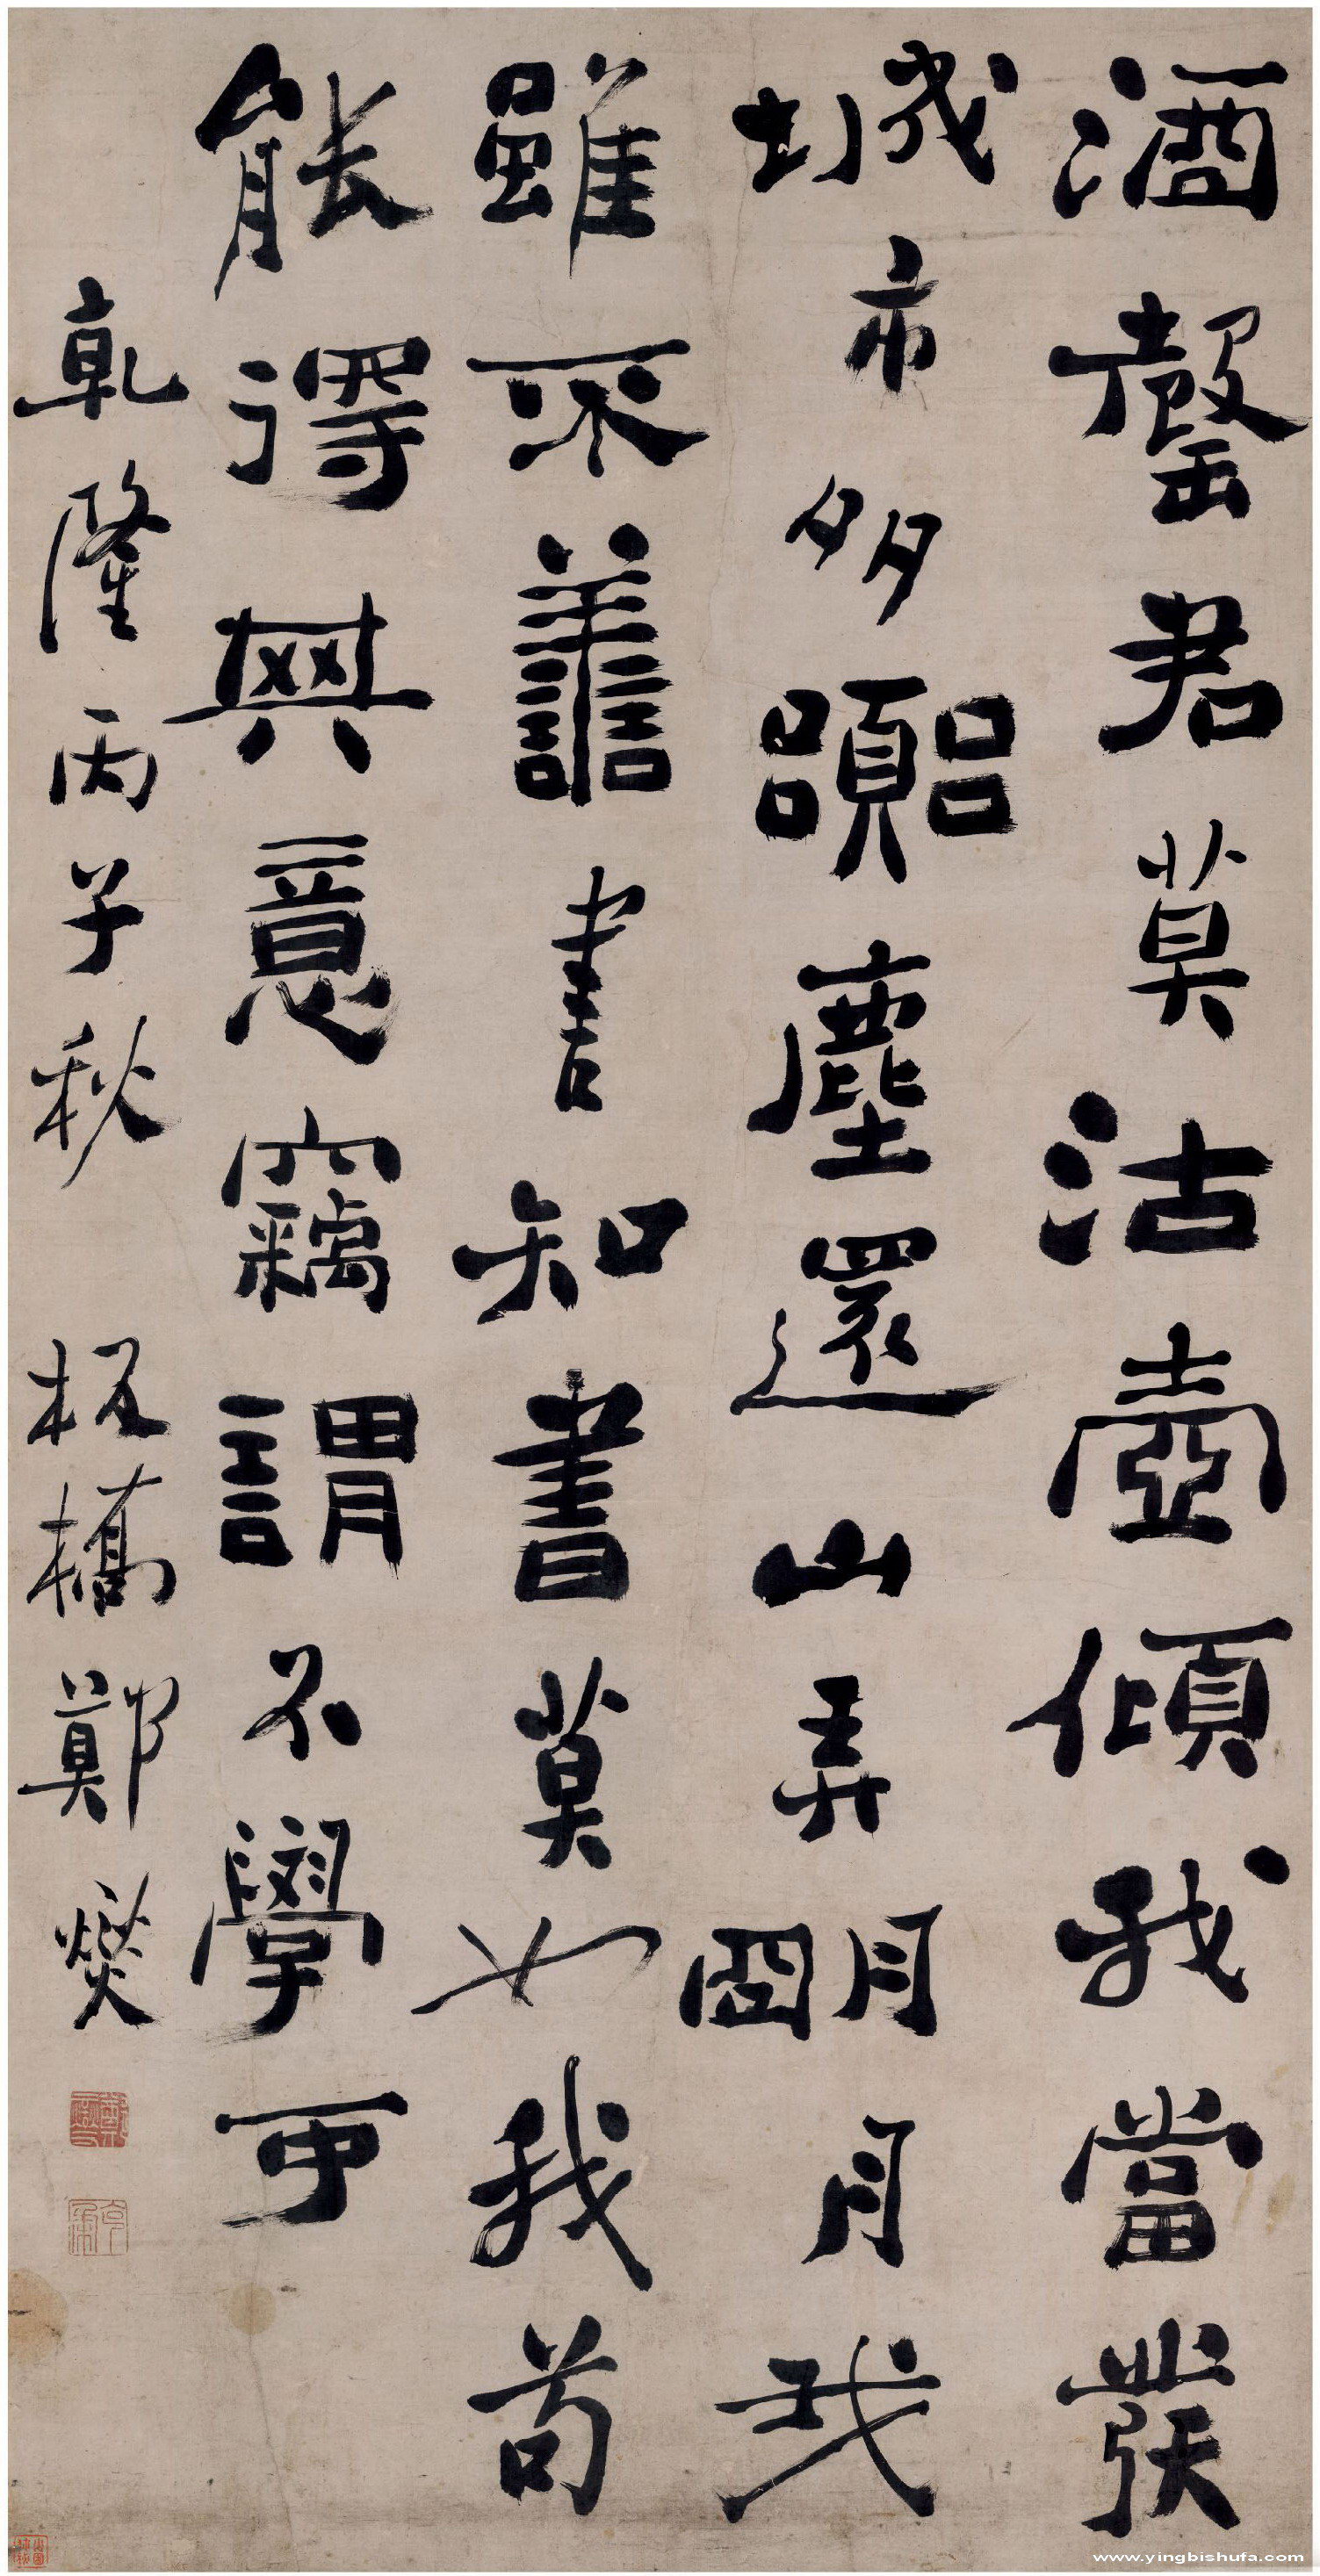 酒罄君莫沽壺傾我當發
城市多囂塵還山弄明月我
雖不善書知書莫如我苟
能得其意竊謂不學可
乾隆丙子秋 板橋鄭燮
www.yingbishufa.com